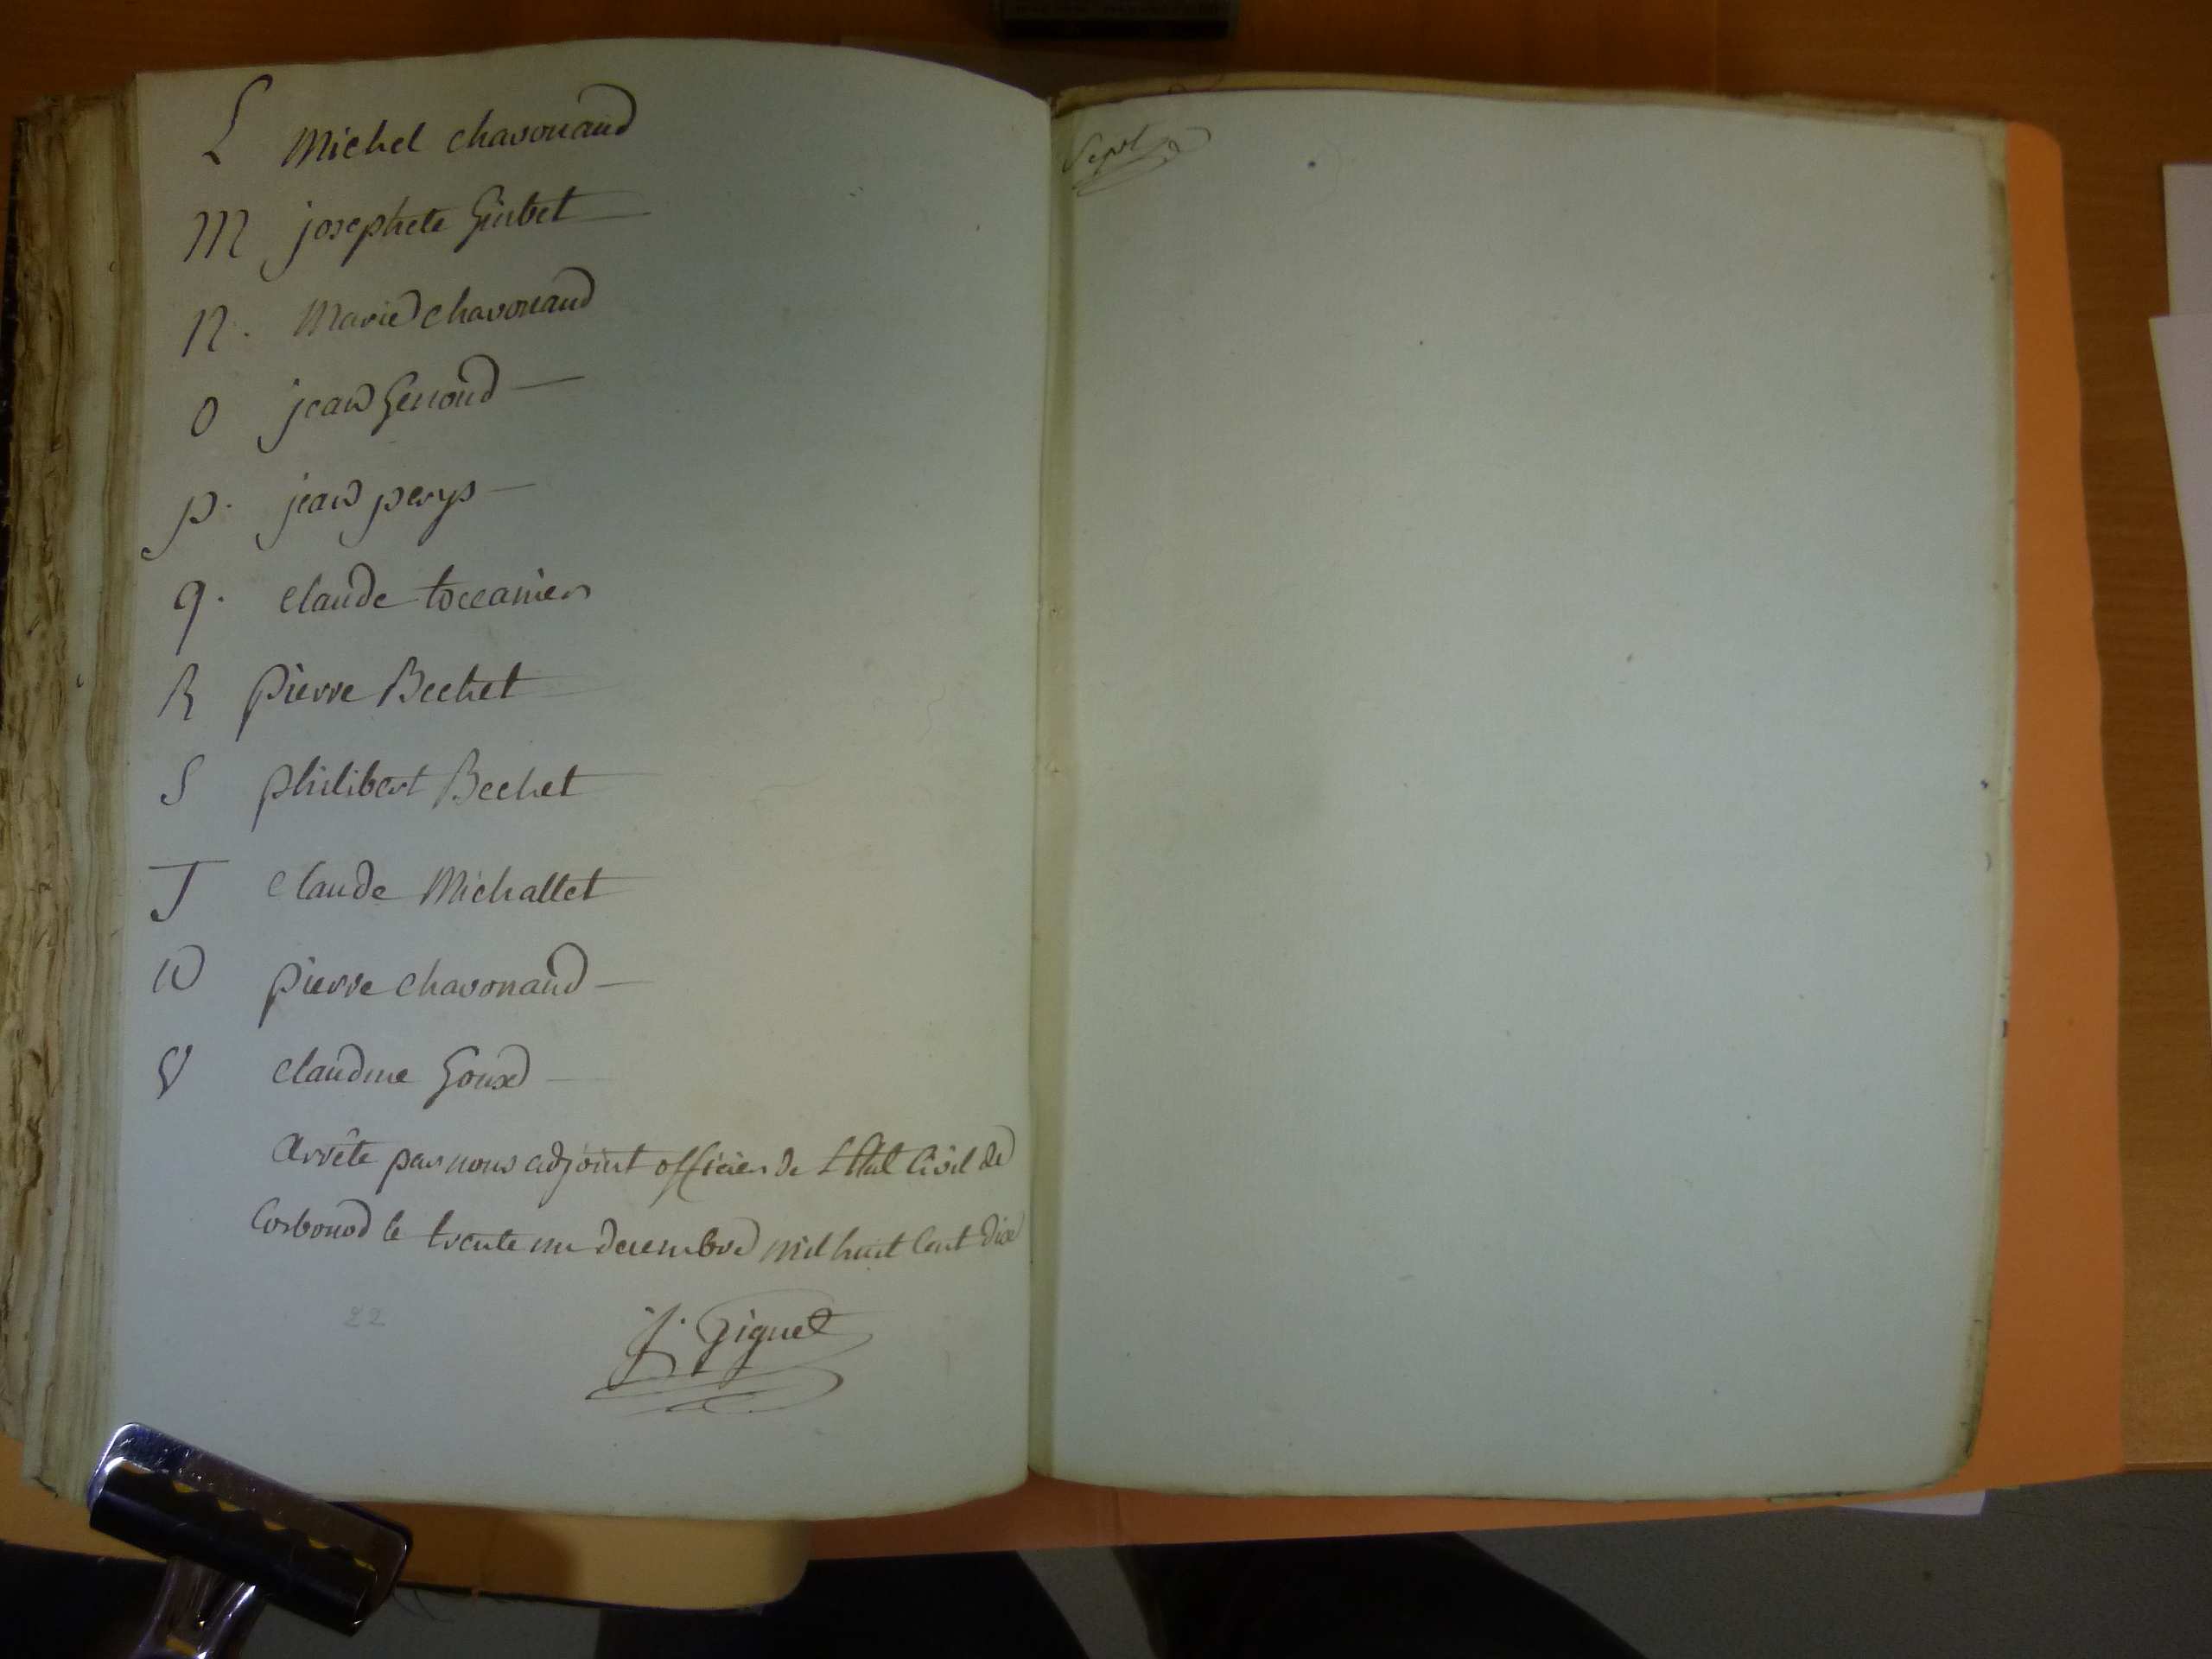 L Michel chavonand
M josephete Girbet
N. Marie chavonand
O jean Genoud
p. jean perys
q. claude toccanier
R pierre Bechet
S philibert Bechet
T claude Michallet
U pierre chavonand
V claudine Goux
arrête par nous adjoint officier de L'Etat Civil de
Corbonod le trente un decembre mil huit Cent dix
J. Giguet
22
Sept